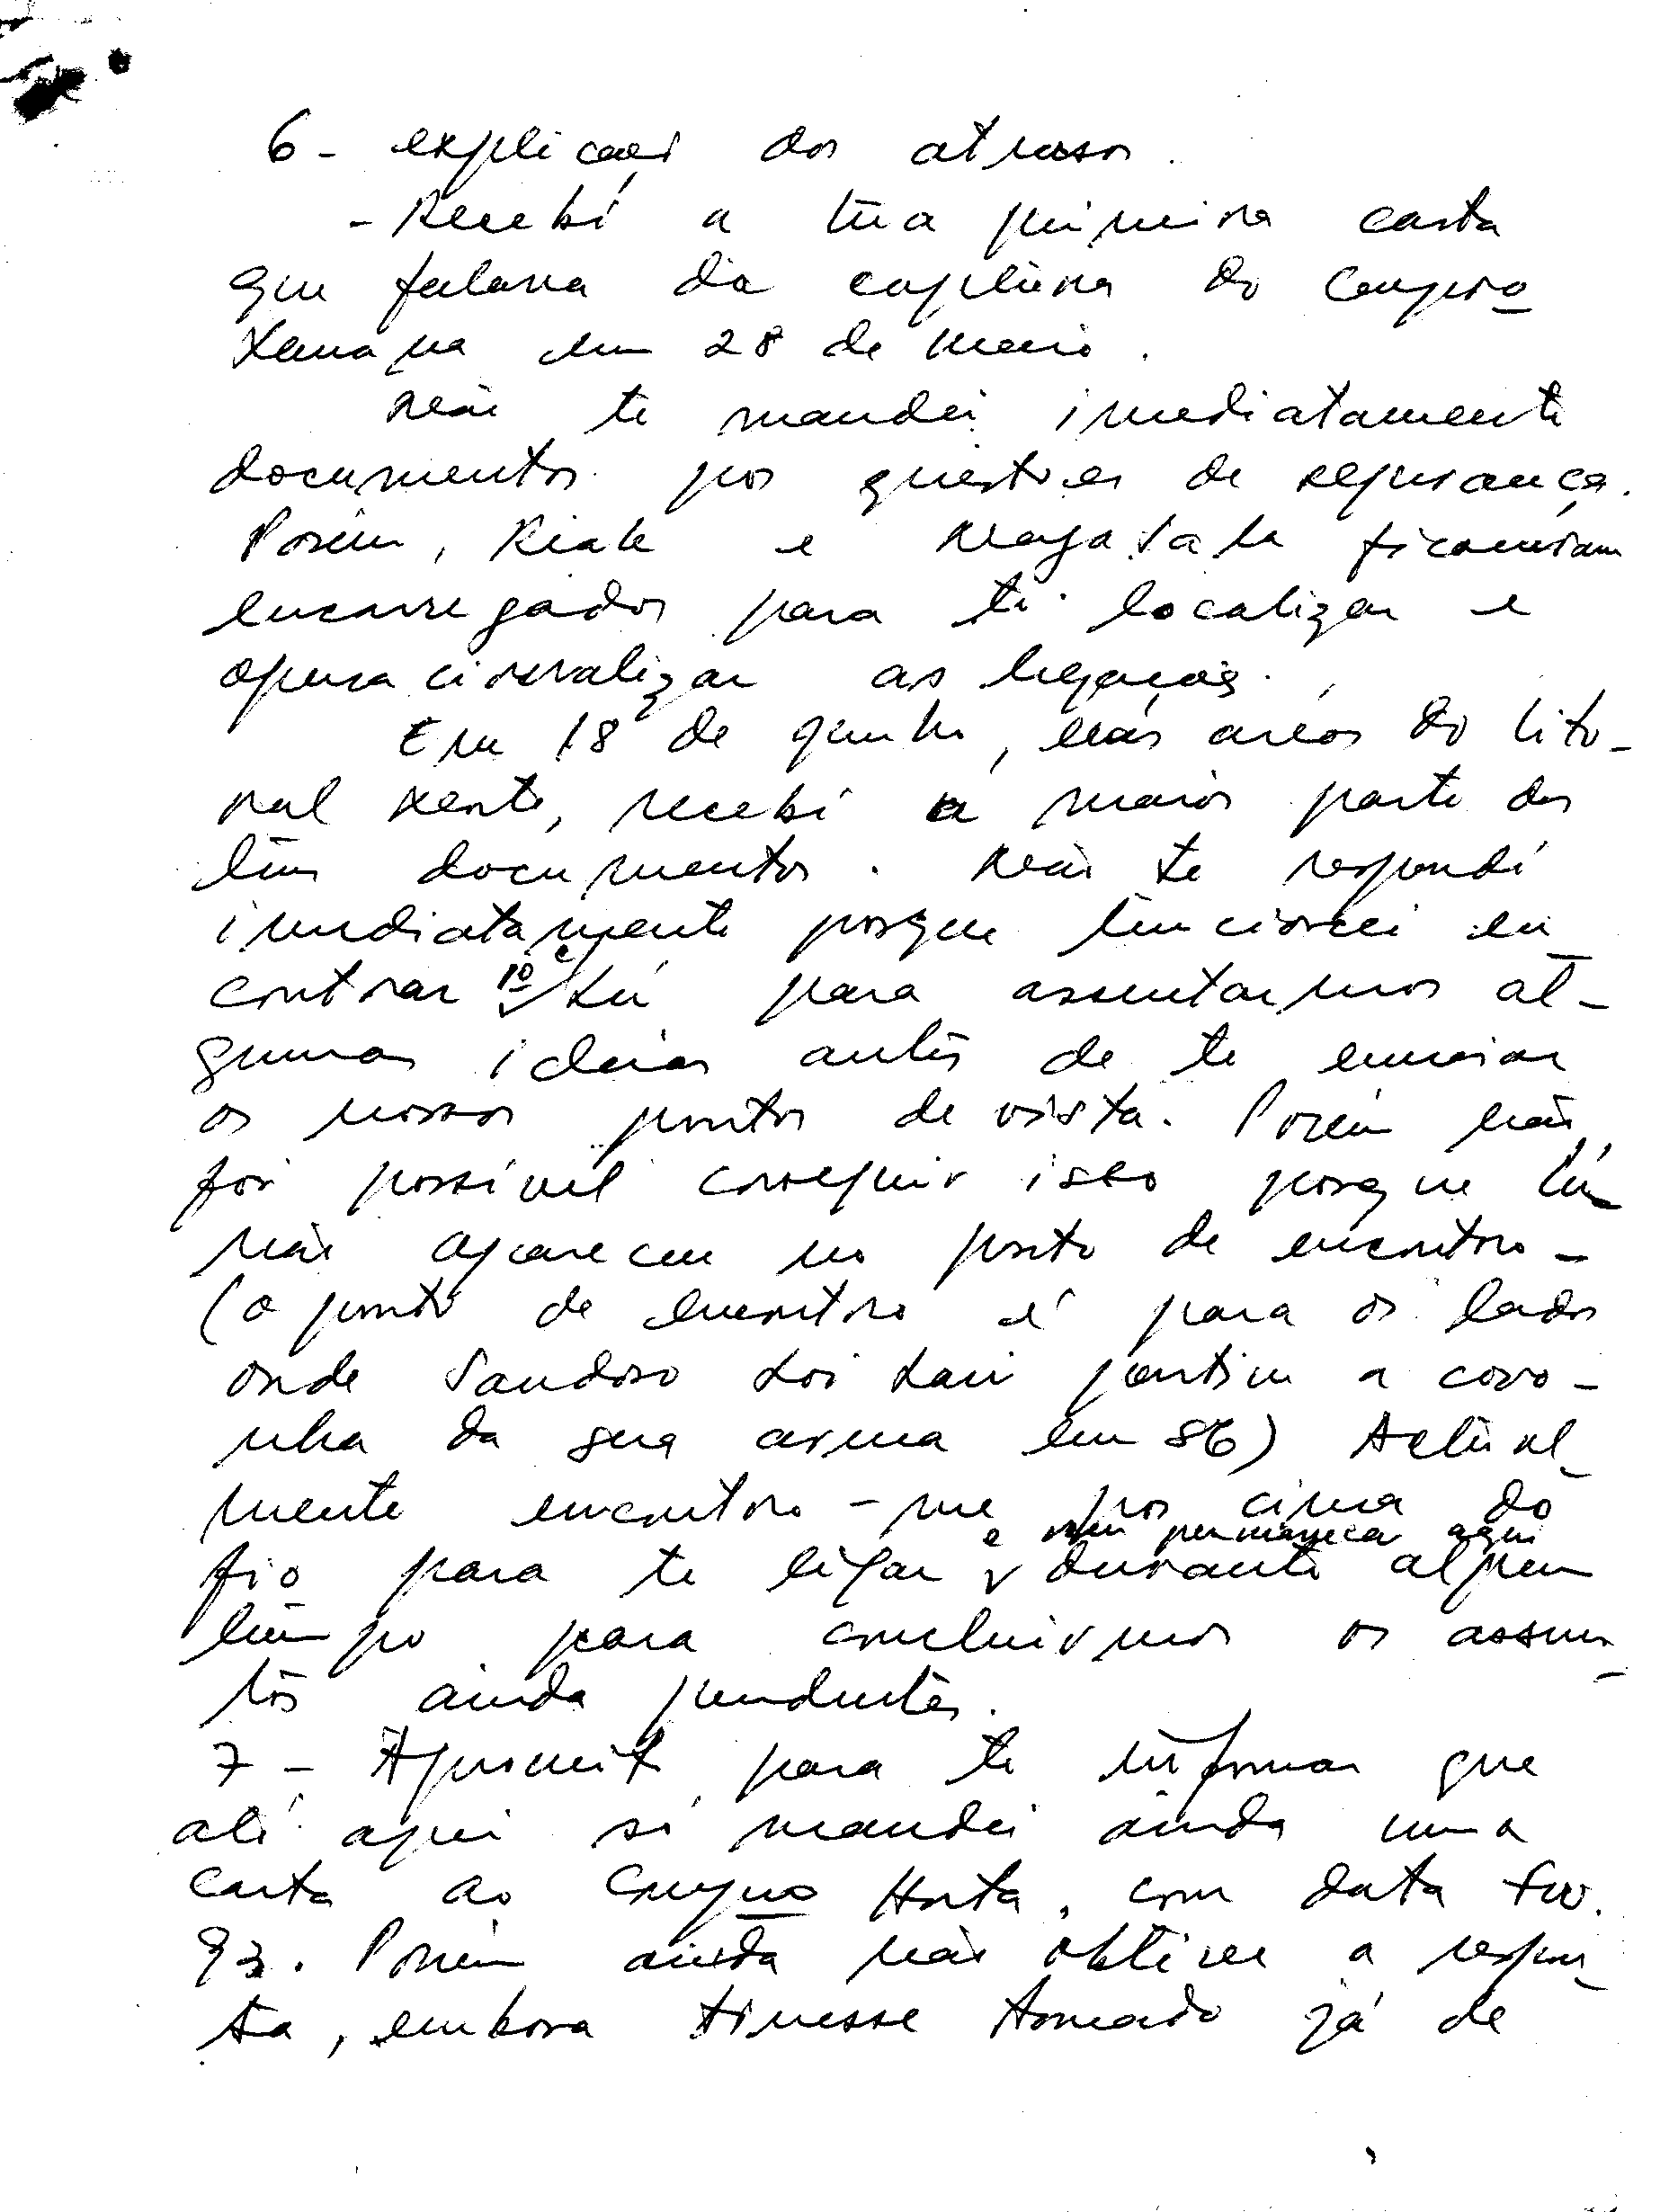 6 - explicações dos atrasos.
- Recebí a tua primeira carta
que falava da captura do Compº
Xanana em 28 de Maio.
Não te mandei imediatamente
documentos por questões de segurança.
Porém, e ficaram
encarregados para te localizar e
operacionalizar as ligações.
Em 18 de junho, nas áreas do lito-
ral recebí a maior parte dos
teus documentos. Não te respondí
imediatamente porque tencionei en-
contrar 1º c/ Lú para assentarmos al-
gumas ideias antes de te enviar
os nossos pontos de vista. Porém não
foi possível conseguir isso porque Lú
não apareceu no ponto de encontro -
(o ponto de encontro é para os lados
onde partiu a coro-
nha da sua arma em 86) Actual-
mente encontro-me por cima do
e vou permanecer aqui
fio para te ligar durante algum
tempo para concluirmos os assun-
tos ainda pendentes.
7 - Aproveito para te informar que
até aqui só mandei ainda uma
carta ao Compº Horta, com data Fev.
93. Porém ainda não obtive a respos-
ta, embora tivesse tomado já de